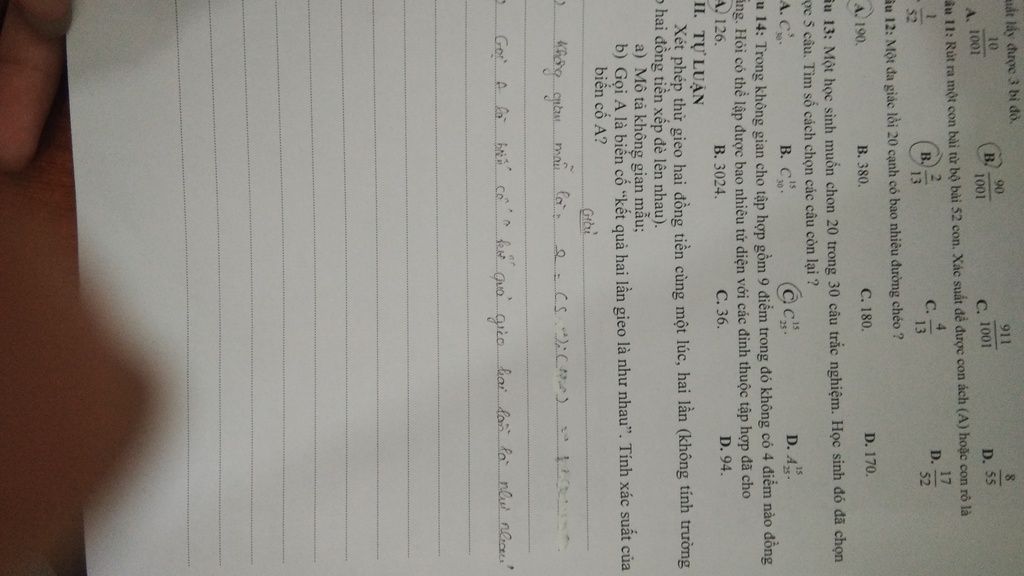 suất lấy được 3 bi đỏ.
A. 10/1001 B. 90/1001 C. 911/1001 D. 8/55
âu 11: Rút ra một con bài từ bộ bài 52 con. Xác suất để được con ách (A) hoặc con rô là
1/52 B. 2/13 C. 4/13 D. 17/52
âu 12: Một đa giác lồi 20 cạnh có bao nhiêu đường chéo ?
A. 190. B. 380. C. 180. D. 170.
âu 13: Một học sinh muốn chọn 20 trong 30 câu trắc nghiệm. Học sinh đó đã chọn
ợc 5 câu. Tìm số cách chọn các câu còn lại ?
A. C⁵₃₀. B. C¹⁵₃₀. C. C¹⁵₂₅. D. A¹⁵₂₅.
u 14: Trong không gian cho tập hợp gồm 9 điểm trong đó không có 4 điểm nào đồng
ẳng. Hỏi có thể lập được bao nhiêu tứ diện với các đỉnh thuộc tập hợp đã cho
A. 126. B. 3024. C. 36. D. 94.
II. TỰ LUẬN
Xét phép thử gieo hai đồng tiền cùng một lúc, hai lần (không tính trường
hai đồng tiền xếp đè lên nhau).
a) Mô tả không gian mẫu;
b) Gọi A là biến cố "kết quả hai lần gieo là như nhau". Tính xác suất của
biến cố A?
Giải
) Không gian mẫu là:
) Gọi A là biến cố " kết quả gieo hai lần là như nhau"